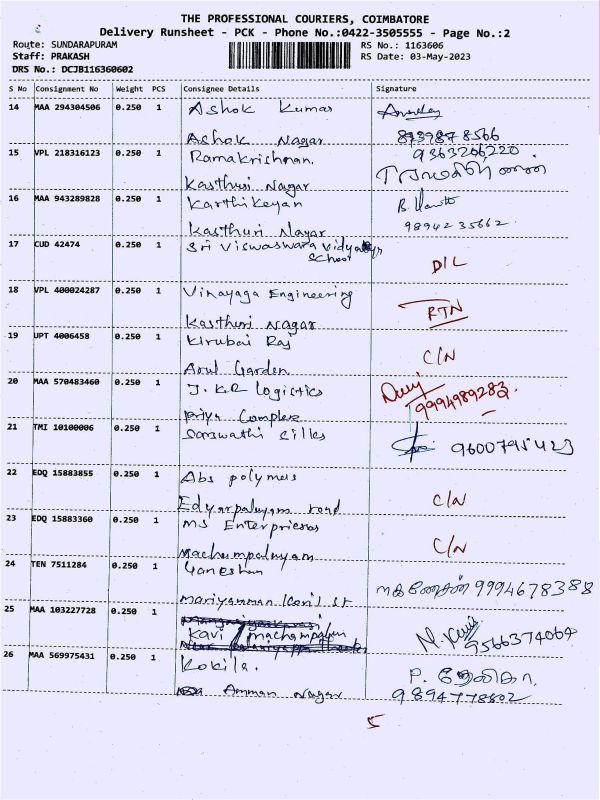 THE PROFESSIONAL COURIERS, COIMBATORE
Delivery Runsheet - PCK - Phone No.:0422-3505555 - Page No.:2
Route: SUNDARAPURAM RS No.: 1163606
Staff: PRAKASH RS Date: 03-May-2023
DRS No.: DCJB116360602
S No Consignment No Weight PCS Consignee Details Signature
14 MAA 294304506 0.250 1 Ashok Kumar
Ashok Nagar 873987 8566
15 VPL 218316123 0.250 1 Ramakrishnan. 9363266220
Kasthuri Nagar
16 MAA 943289828 0.250 1 Karthikeyan
Kasthuri Nagar 98942 35662
17 CUD 42474 0.250 1 Sri Viswaswara
School D/L
18 VPL 400024287 0.250 1 Vinayaga Engineering
Kasthuri Nagar RTN
19 UPT 4006458 0.250 1 Kirubai Raj
Arul Garden C/N
20 MAA 570483460 0.250 1 J. K R Logistics
Priya Complex 9994989283
21 TMI 10100006 0.250 1 Sarswathi Silks 9600795423
22 EDQ 15883855 0.250 1 Abs polymers
Edyarpalayam road C/N
23 EDQ 15883360 0.250 1 MS Enterprises
Machampalayam C/N
24 TEN 7511284 0.250 1 Ganeshan
Mariyamman Kovil St மகணேசன் 9994678388
25 MAA 103227728 0.250 1
Kavi / machampalam 9566374064
26 MAA 569975431 0.250 1 Kokila.
Amman Nagar 9894778802
5